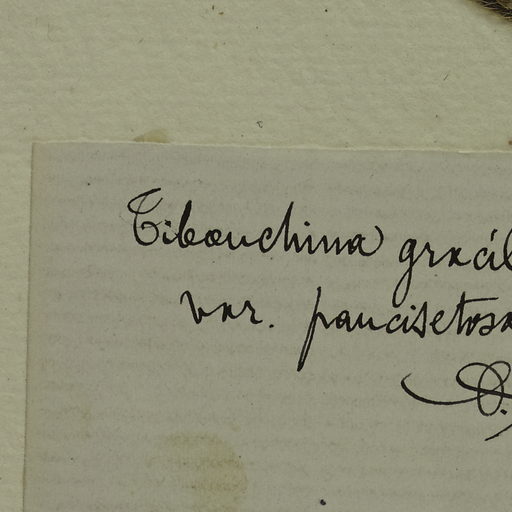 Tibouchina gracil
var. paucisetosa